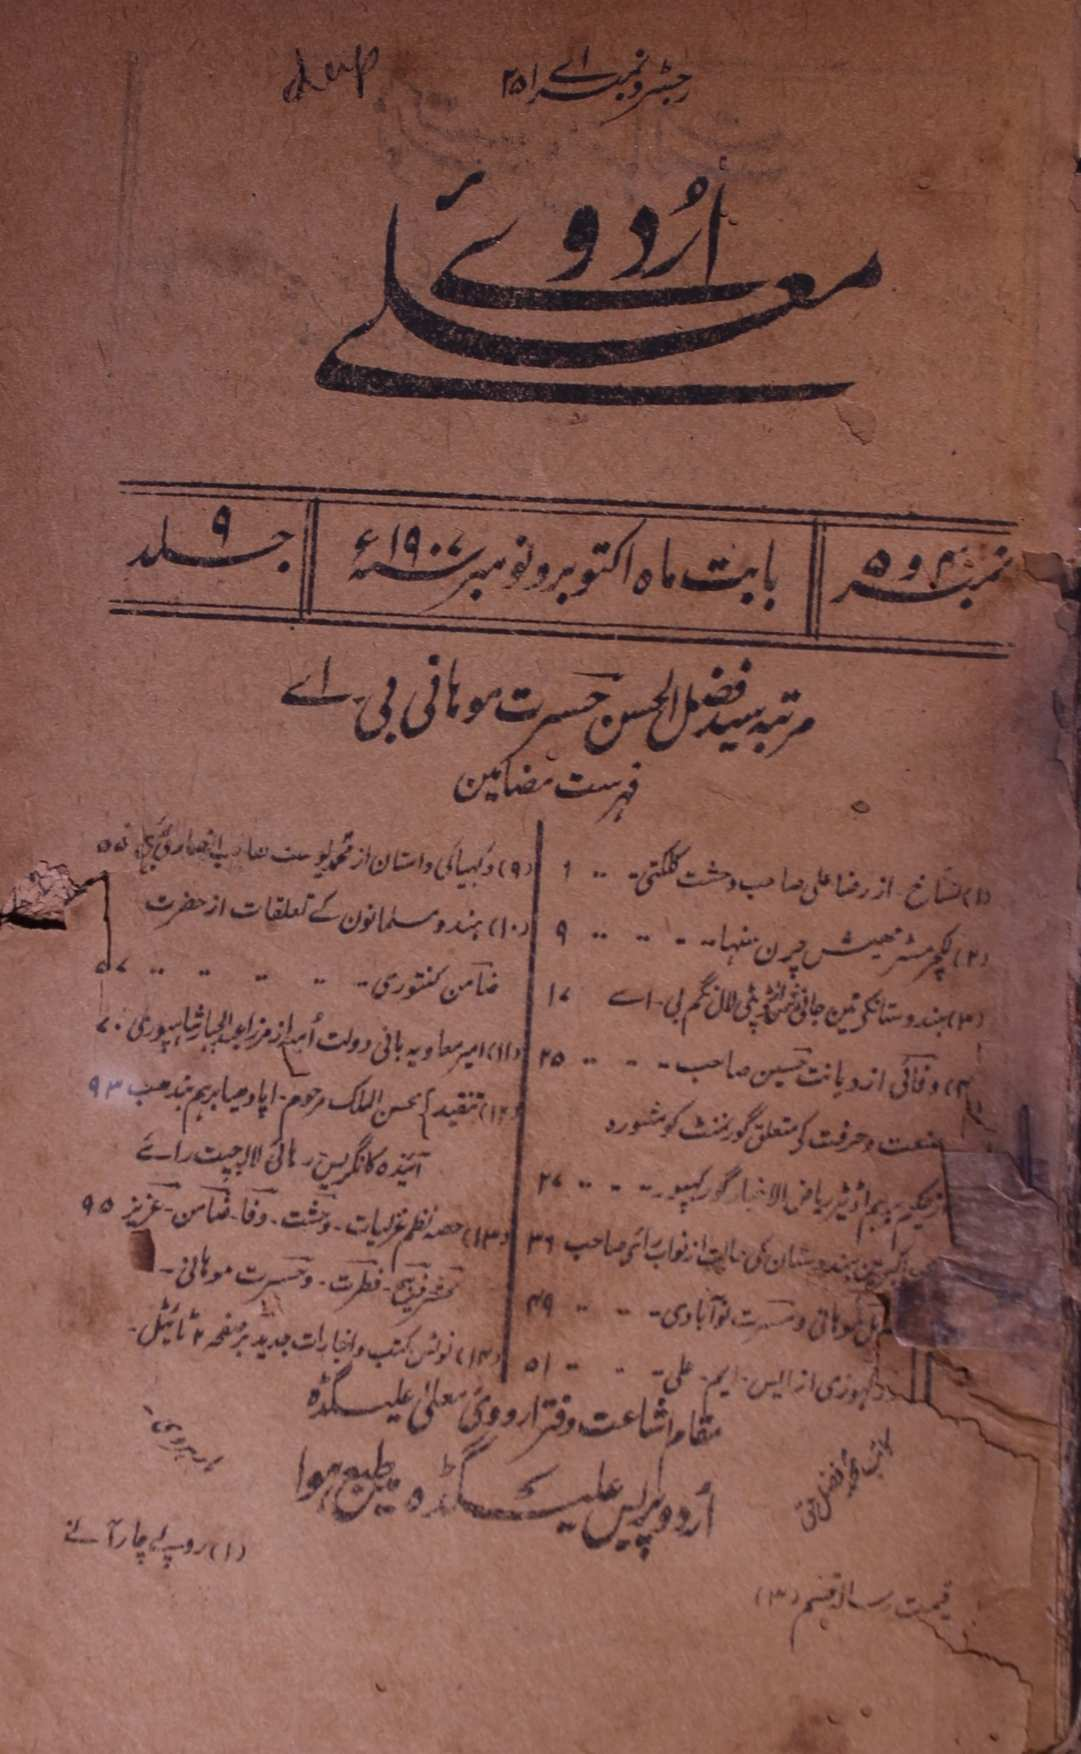 dup
رجسٹرڈ نمبر اے ۲۵۱
اُردوئے
معلے
نمبر ۴ و ۵
بابت ماہ اکتوبر و نومبر سنہ ۱۹۰۷ء
جلد ۹
مرتبہ سید فضل الحسن حسرت موہانی بی۔ اے
فہرست مضامین
(۱) نساخ۔ از رضا علی صاحب وحشت کلکتی ۔۔ ۔۔ ۱
(۲) لکچر مسٹر چرن سنہا ۔۔ ۔۔ ۔۔ ۹
(۳) ہندوستان لال نگم بی۔ اے ۱۷
وفا کی از دیانت حسین صاحب ۔۔ ۔۔ ۲۵
صنعت و حرفت کے متعلق گورنمنٹ کو مشورہ
از حکیم برہم اڈیٹر ریاض الاخبار گورکھپور ۔۔ ۔۔ ۲۷
ہندوستان کی حالت از نواب رائے صاحب ۳۶
موہانی و مسرت نوآبادی ۔۔ ۔۔ ۴۹
از ایس۔ ایم۔ علی ۔۔ ۔۔ ۵۱
(۹) دکھیا کی داستان از محمد یوسف صاحب انصاری ۵۵
(۱۰) ہندو مسلمانوں کے تعلقات از حضرت
ضامن کنتوری ۔۔ ۔۔ ۔۔ ۔۔
(۱۱) امیر معاویہ بانی دولت اُمیہ از مرزا عبدالجبار شاہپوری ۷۰
(۱۲) تنقید محسن الملک مرحوم۔ اپادھیا برہم بندھب ۹۳
آئیندہ کانگریس رہائی لالہ لاجپت رائے
(۱۳) حصہ نظم غزلیات۔ وحشت۔ وفا۔ ضامن۔ عزیز ۹۵
فطرت۔ و حسرت موہانی۔
(۱۴) نوٹس کتب و اخبارات جدید بر صفحہ ۲ ٹائیٹل۔
مقام اشاعت دفتر اردوی معلی علیگڈہ
اُردو پریس علیگڈہ میں طبع ہوا
کاتب محمد افضل
قیمت رسالہ قسم (۳)
(۱) روپے چار آنے